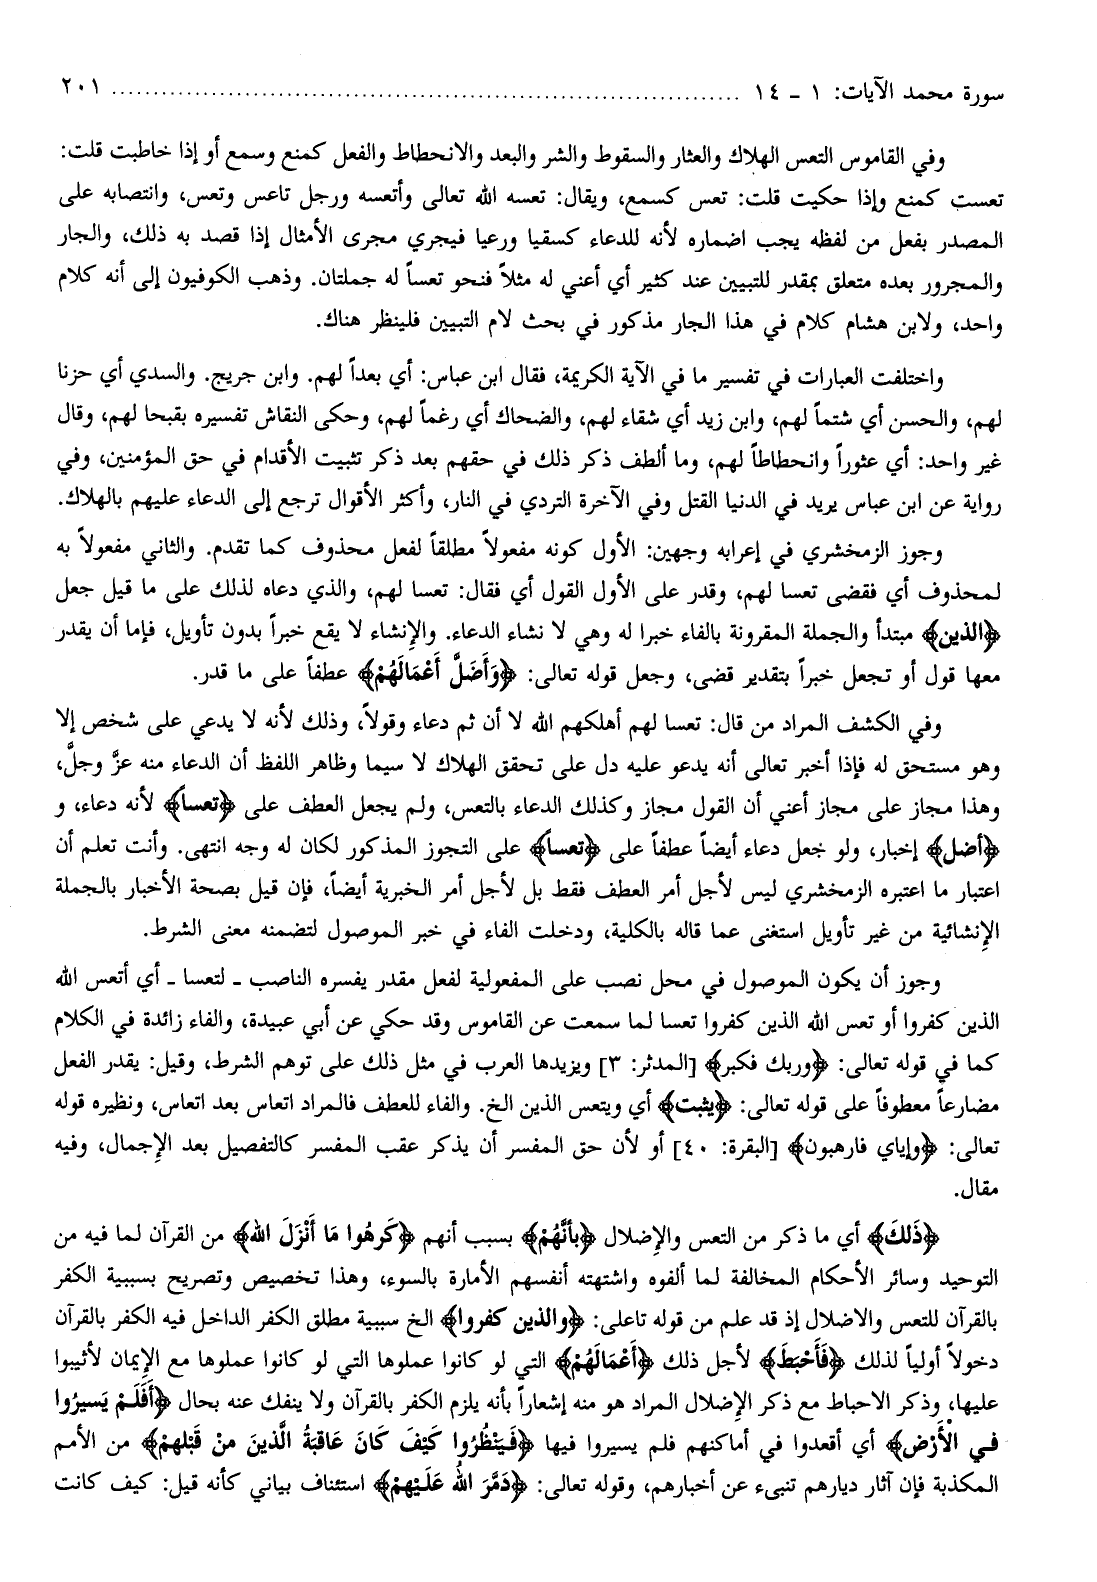 سورة محمد الآيات: ١ ـ ١٤ ........................................................................ ٢٠١
وفي القاموس التعس الهلاك والعثار والسقوط والشر والبعد والانحطاط والفعل كمنع وسمع أو إذا خاطبت قلت:
تعست كمنع وإذا حكيت قلت: تعس كسمع، ويقال: تعسه الله تعالى وأتعسه ورجل تاعس وتعس، وانتصابه على
المصدر بفعل من لفظه يجب اضماره لأنه للدعاء كسقيا ورعيا فيجري مجرى الأمثال إذا قصد به ذلك، والجار
والمجرور بعده متعلق بمقدر للتبيين عند كثير أي أعني له مثلاً فنحو تعساً له جملتان. وذهب الكوفيون إلى أنه كلام
واحد، ولابن هشام كلام في هذا الجار مذكور في بحث لام التبيين فلينظر هناك.
واختلفت العبارات في تفسير ما في الآية الكريمة، فقال ابن عباس: أي بعداً لهم. وابن جريج. والسدي أي حزنا
لهم، والحسن أي شتماً لهم، وابن زيد أي شقاء لهم، والضحاك أي رغماً لهم، وحكى النقاش تفسيره بقبحا لهم، وقال
غير واحد: أي عثوراً وانحطاطاً لهم، وما ألطف ذكر ذلك في حقهم بعد ذكر تثبيت الأقدام في حق المؤمنين، وفي
رواية عن ابن عباس يريد في الدنيا القتل وفي الآخرة التردي في النار، وأكثر الأقوال ترجع إلى الدعاء عليهم بالهلاك.
وجوز الزمخشري في إعرابه وجهين: الأول كونه مفعولاً مطلقاً لفعل محذوف كما تقدم. والثاني مفعولاً به
لمحذوف أي فقضى تعسا لهم، وقدر على الأول القول أي فقال: تعسا لهم، والذي دعاه لذلك على ما قيل جعل
﴿الذين﴾ مبتدأ والجملة المقرونة بالفاء خبرا له وهي لا نشاء الدعاء. والإنشاء لا يقع خبراً بدون تأويل، فإما أن يقدر
معها قول أو تجعل خبراً بتقدير قضى، وجعل قوله تعالى: ﴿وَأَضَلَّ أَعْمَالَهُمْ﴾ عطفاً على ما قدر.
وفي الكشف المراد من قال: تعسا لهم أهلكهم الله لا أن ثم دعاء وقولاً، وذلك لأنه لا يدعي على شخص إلا
وهو مستحق له فإذا أخبر تعالى أنه يدعو عليه دل على تحقق الهلاك لا سيما وظاهر اللفظ أن الدعاء منه عزَّ وجلَّ،
وهذا مجاز على مجاز أعني أن القول مجاز وكذلك الدعاء بالتعس، ولم يجعل العطف على ﴿تعساً﴾ لأنه دعاء، و
﴿أضل﴾ إخبار، ولو جعل دعاء أيضاً عطفاً على ﴿تعساً﴾ على التجوز المذكور لكان له وجه انتهى. وأنت تعلم أن
اعتبار ما اعتبره الزمخشري ليس لأجل أمر العطف فقط بل لأجل أمر الخبرية أيضاً، فإن قيل بصحة الأخبار بالجملة
الإنشائية من غير تأويل استغنى عما قاله بالكلية، ودخلت الفاء في خبر الموصول لتضمنه معنى الشرط.
وجوز أن يكون الموصول في محل نصب على المفعولية لفعل مقدر يفسره الناصب ـ لتعسا ـ أي أتعس الله
الذين كفروا أو تعس الله الذين كفروا تعسا لما سمعت عن القاموس وقد حكي عن أبي عبيدة، والفاء زائدة في الكلام
كما في قوله تعالى: ﴿وربك فكبر﴾ [المدثر: ٣] ويزيدها العرب في مثل ذلك على توهم الشرط، وقيل: يقدر الفعل
مضارعاً معطوفاً على قوله تعالى: ﴿يثبت﴾ أي ويتعس الذين الخ. والفاء للعطف فالمراد اتعاس بعد اتعاس، ونظيره قوله
تعالى: ﴿وإياي فارهبون﴾ [البقرة: ٤٠] أو لأن حق المفسر أن يذكر عقب المفسر كالتفصيل بعد الإجمال، وفيه
مقال.
﴿ذَلكَ﴾ أي ما ذكر من التعس والإضلال ﴿بأنَّهُمْ﴾ بسبب أنهم ﴿كَرهُوا مَا أَنْزَلَ الله﴾ من القرآن لما فيه من
التوحيد وسائر الأحكام المخالفة لما ألفوه واشتهته أنفسهم الأمارة بالسوء، وهذا تخصيص وتصريح بسببية الكفر
بالقرآن للتعس والاضلال إذ قد علم من قوله تاعلى: ﴿والذين كفروا﴾ الخ سببية مطلق الكفر الداخل فيه الكفر بالقرآن
دخولاً أولياً لذلك ﴿فَأَحْبَطَ﴾ لأجل ذلك ﴿أَعْمَالَهُمْ﴾ التي لو كانوا عملوها التي لو كانوا عملوها مع الإيمان لأثيبوا
عليها، وذكر الاحباط مع ذكر الإضلال المراد هو منه إشعاراً بأنه يلزم الكفر بالقرآن ولا ينفك عنه بحال ﴿أَفَلَمْ يَسيرُوا
في الأَرْض﴾ أي أقعدوا في أماكنهم فلم يسيروا فيها ﴿فَيَنْظُرُوا كَيْفَ كَانَ عَاقبَةُ الَّذينَ منْ قَبْلهمْ﴾ من الأمم
المكذبة فإن آثار ديارهم تنبىء عن أخبارهم، وقوله تعالى: ﴿دَمَّرَ اللَّهُ عَلَيْهمْ﴾ استئناف بياني كأنه قيل: كيف كانت